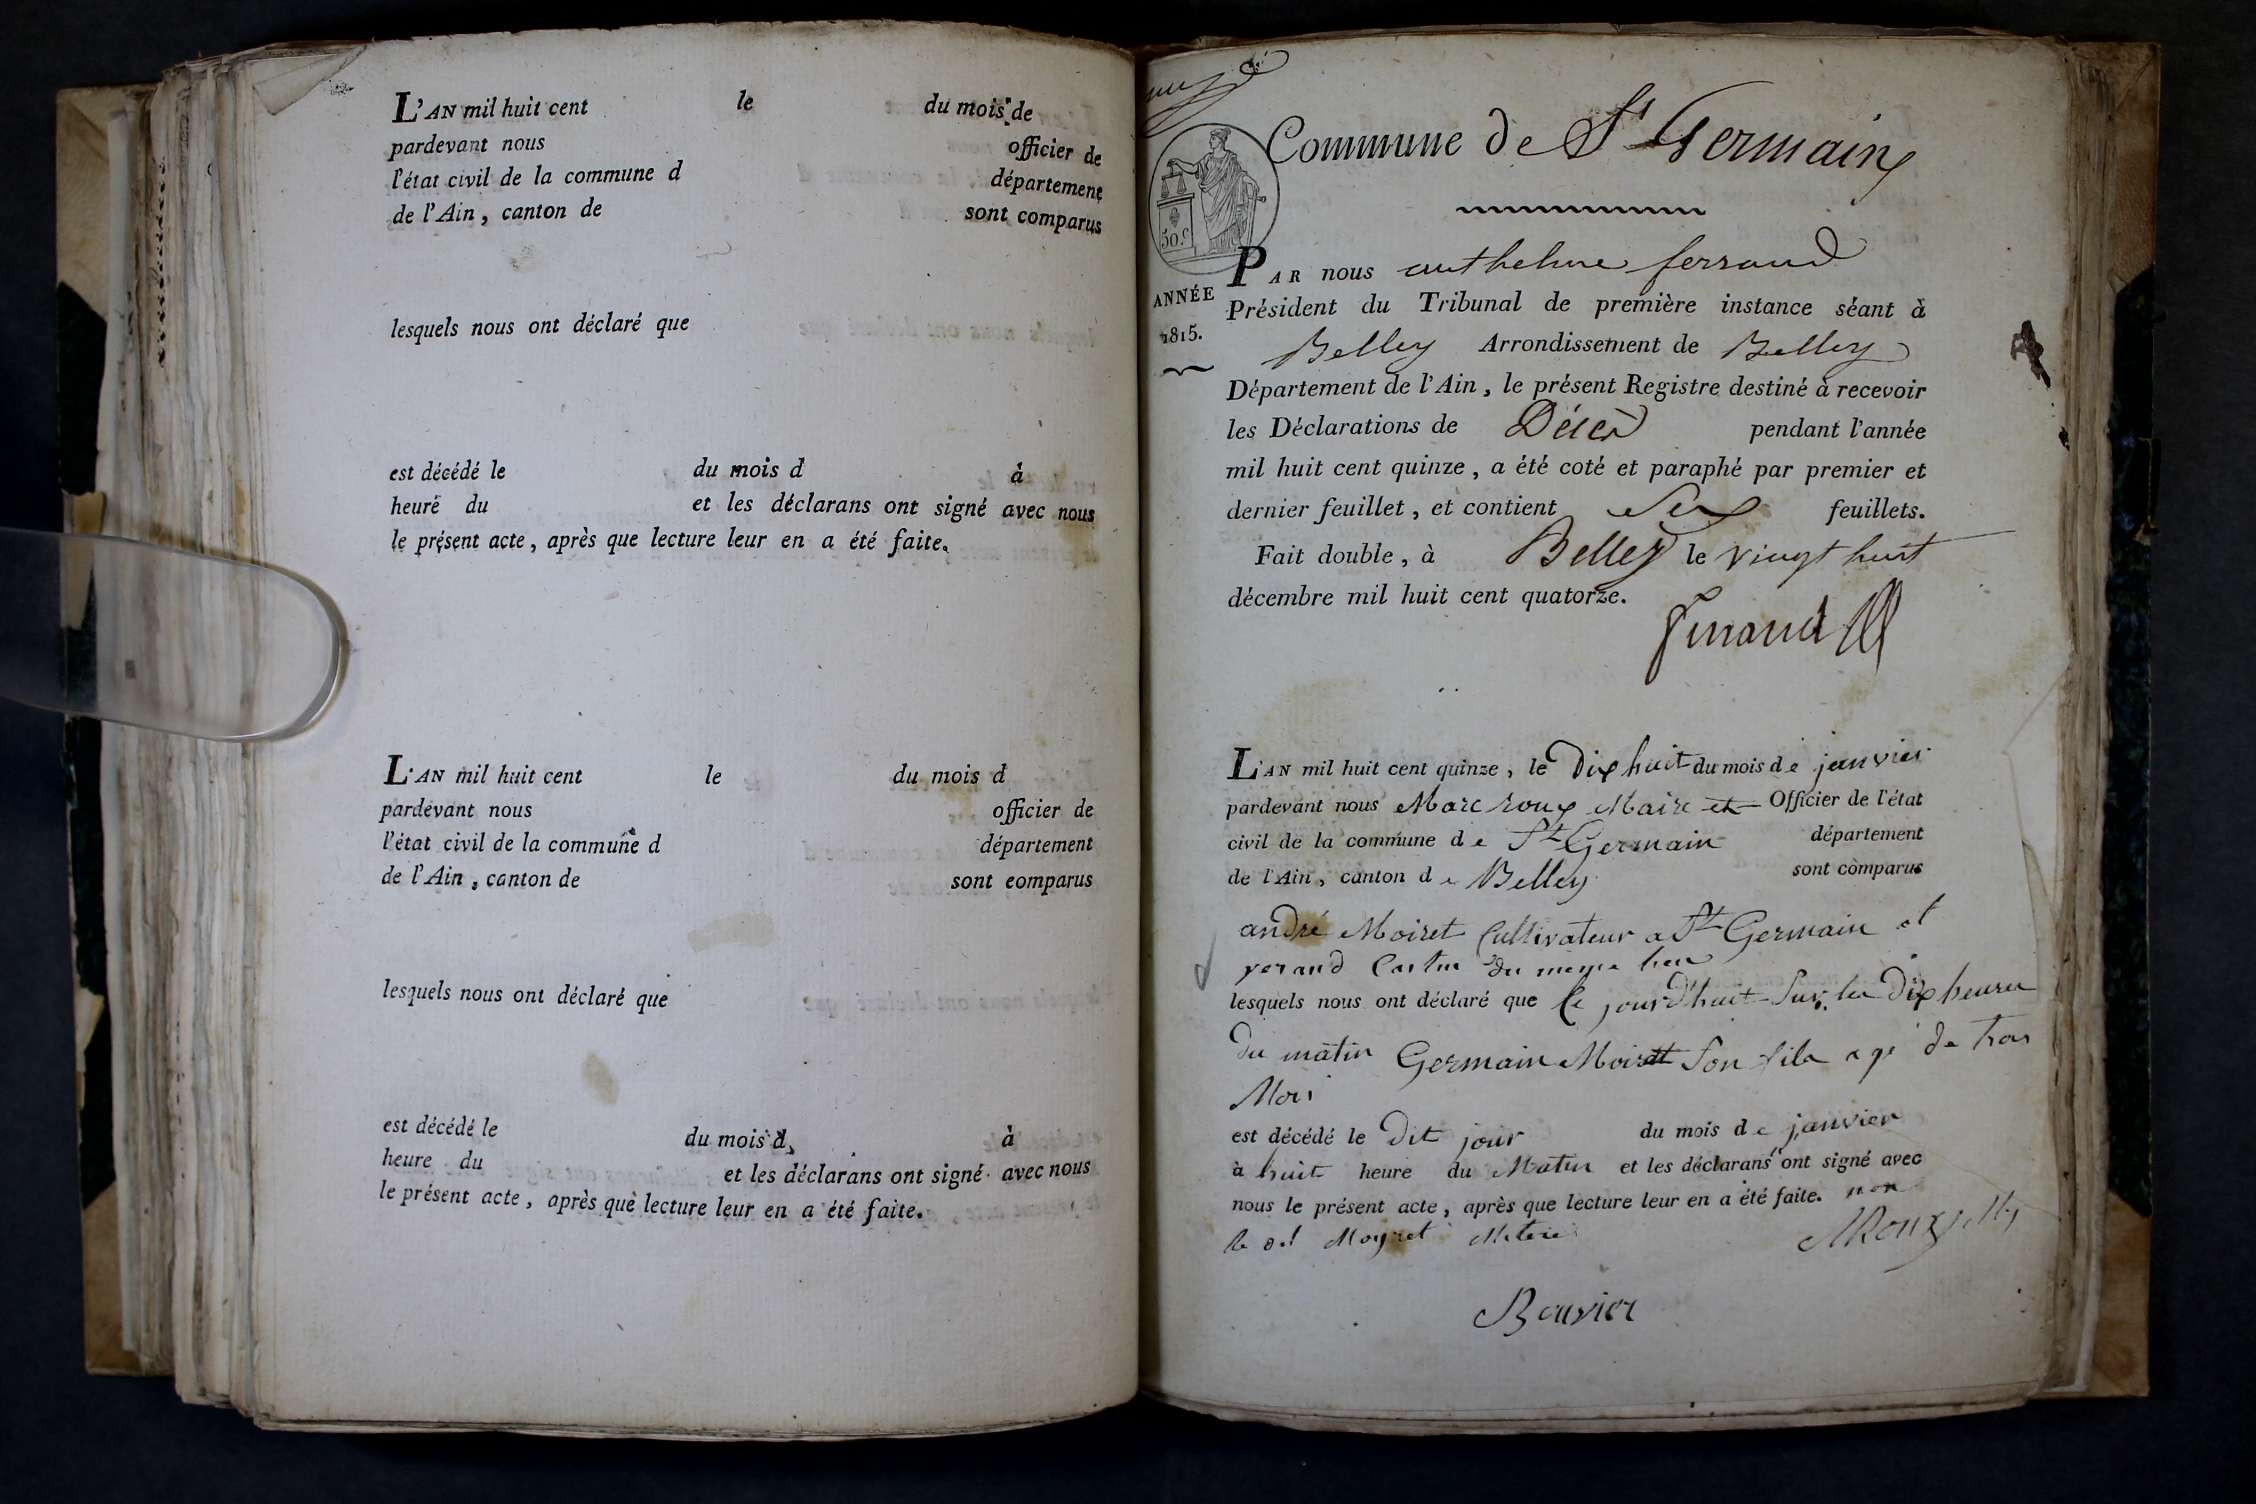 L'AN mil huit cent le du mois de
pardevant nous officier de
l'état civil de la commune d département
de l'Ain, canton de sont comparus
lesquels nous ont déclaré que
est décédé le du mois d à
heure du et les déclarans ont signé avec nous
le présent acte, après que lecture leur en a été faite.
L'AN mil huit cent le du mois d
pardevant nous officier de
l'état civil de la commune d département
de l'Ain, canton de sont eomparus
lesquels nous ont déclaré que
est décédé le du mois d à
heure du et les déclarans ont signé avec nous
le présent acte, après què lecture leur en a été faite.
Commune de St Germain
50 c
ANNÉE
1815.
PAR nous anthelme ferrand
Président du Tribunal de première instance séant à
Belley Arrondissement de Belley
Département de l'Ain, le présent Registre destiné à recevoir
les Déclarations de Décès pendant l'année
mil huit cent quinze, a été coté et paraphé par premier et
dernier feuillet, et contient Six feuillets.
Fait double, à Belley le vingt huit
décembre mil huit cent quatorze.
L'AN mil huit cent quinze, le Dix huit du mois de janvier
pardevant nous Marc roux Maire et Officier de l'état
civil de la commune de St Germain département
de l'Ain, canton de Belley sont comparus
andré Moiret Cultivateur a St Germain et
du meme lieu
lesquels nous ont déclaré que Ce jourd'huit Sur les Dix heures
du matin Germain Moiret Son fils agé de trois
Mois
est décédé le Dit jour du mois de janvier
à huit heure du Matin et les déclarans ont signé avec
nous le présent acte, après que lecture leur en a été faite. non
le Moyret
Bouvier